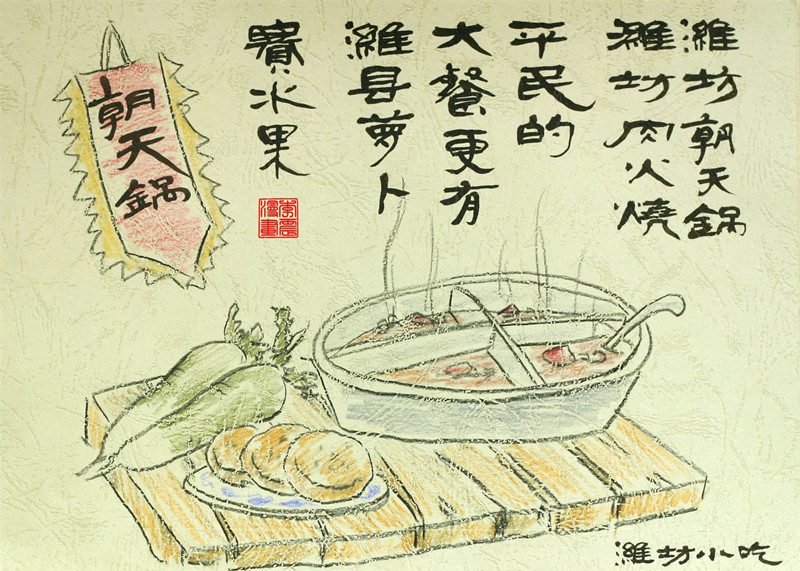 濰坊朝天鍋
濰坊肉火燒
平民的
大餐更有
濰县萝卜
賽水果
朝天鍋
濰坊小吃